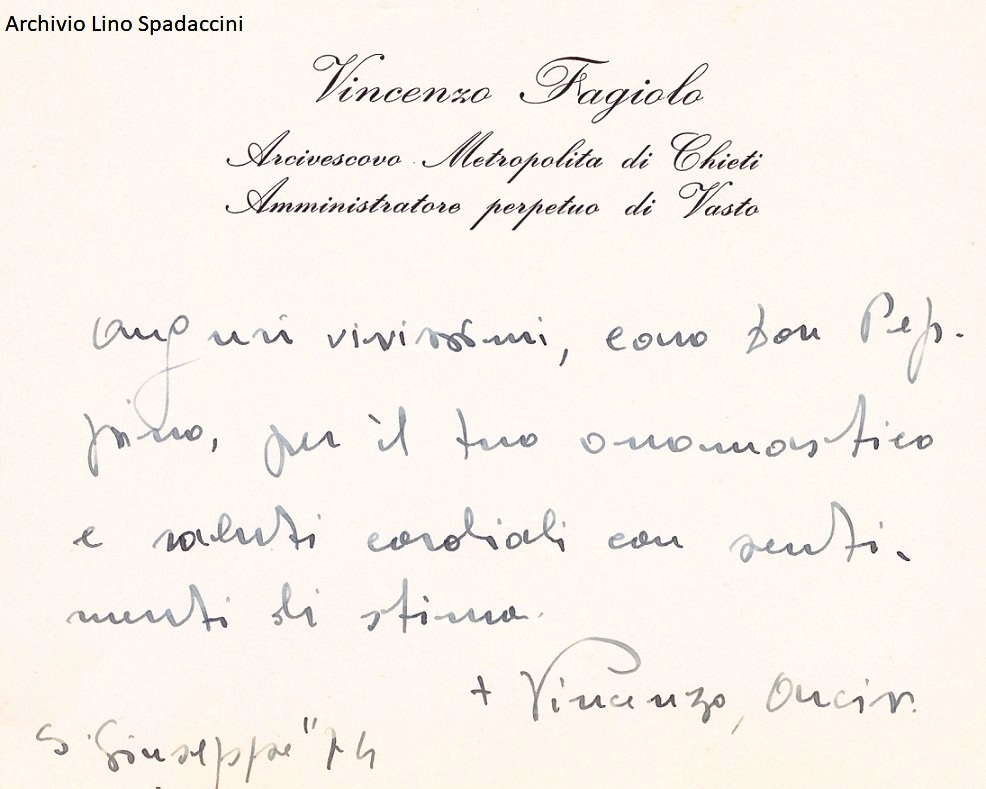 Archivio Lino Spadaccini
Vincenzo Fagiolo
Arcivescovo Metropolita di Chieti
Amministratore perpetuo di Vasto
Auguri vivissimi, caro Don Pep-
pino, per il tuo onomastico
e saluti cordiali con senti-
menti di stima.
+ Vincenzo, Arciv.
S. Giuseppe "74